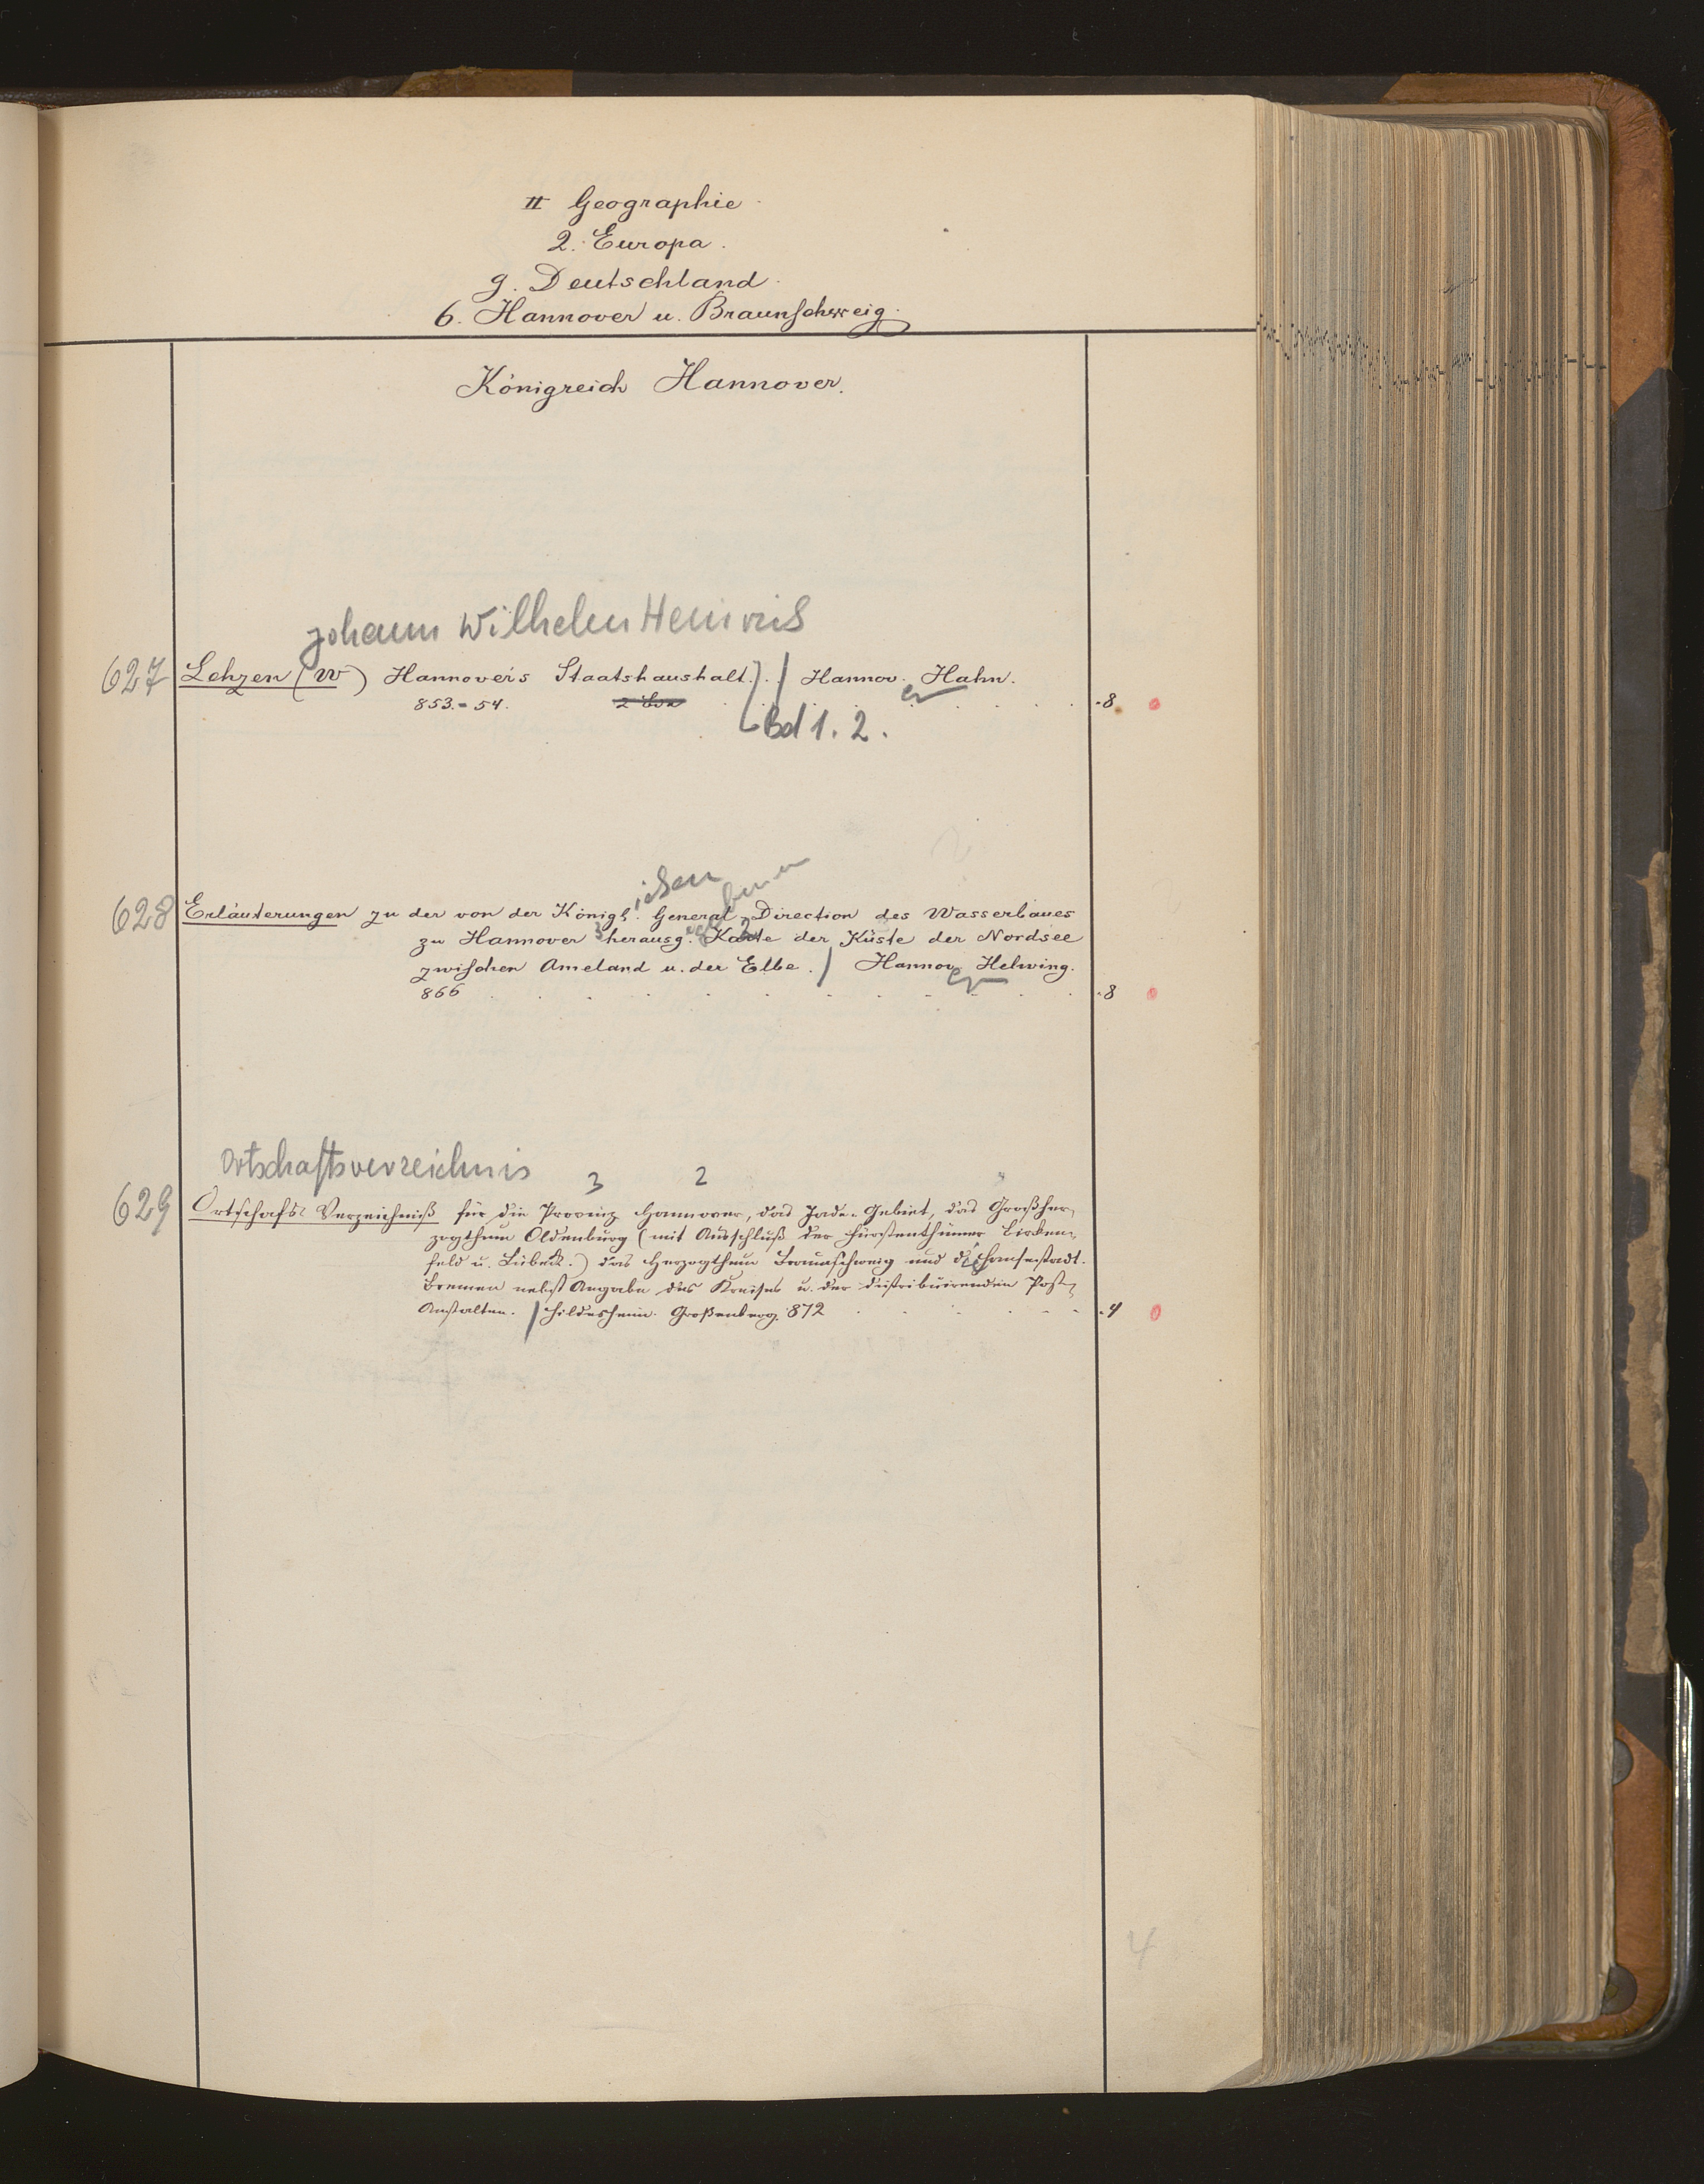 II Geographie.
2. Europa.
g. Deutschland.
6. Hannover u. Braunschweig.
Königreich Hannover.
Johann Wilhelm Heinrich
627 Lehzen (W) Hannover's Staatshaushalt. / Hannov. Hahn.
er
853.-54. 2 Bde . 8
Bd 1. 2.
ichen
benen
628 Erläuterungen zu der von der Königl. General-Direction des Wasserbaues
zu Hannover herausg. Karte der Küste der Nordsee
zwischen Ameland u. der Elbe. / Hannov. Helwing.
er
866 . 8
Ortschaftsverzeichnis
3 2
629 Ortschafts Verzeichniß für die Provinz Hannover, das Jade-Gebiet, das Großher-
zogthum Oldenburg (mit Ausschluß der Fürstenthümer Birken-
feld u. Lübeck.) das Herzogthum Braunschweig und d. Hansestadt
Bremen nebst Angabe des Kreises u. der distribuirenden Post-
Anstalten. / Hildesheim. Großenberg. 872 . 4
4